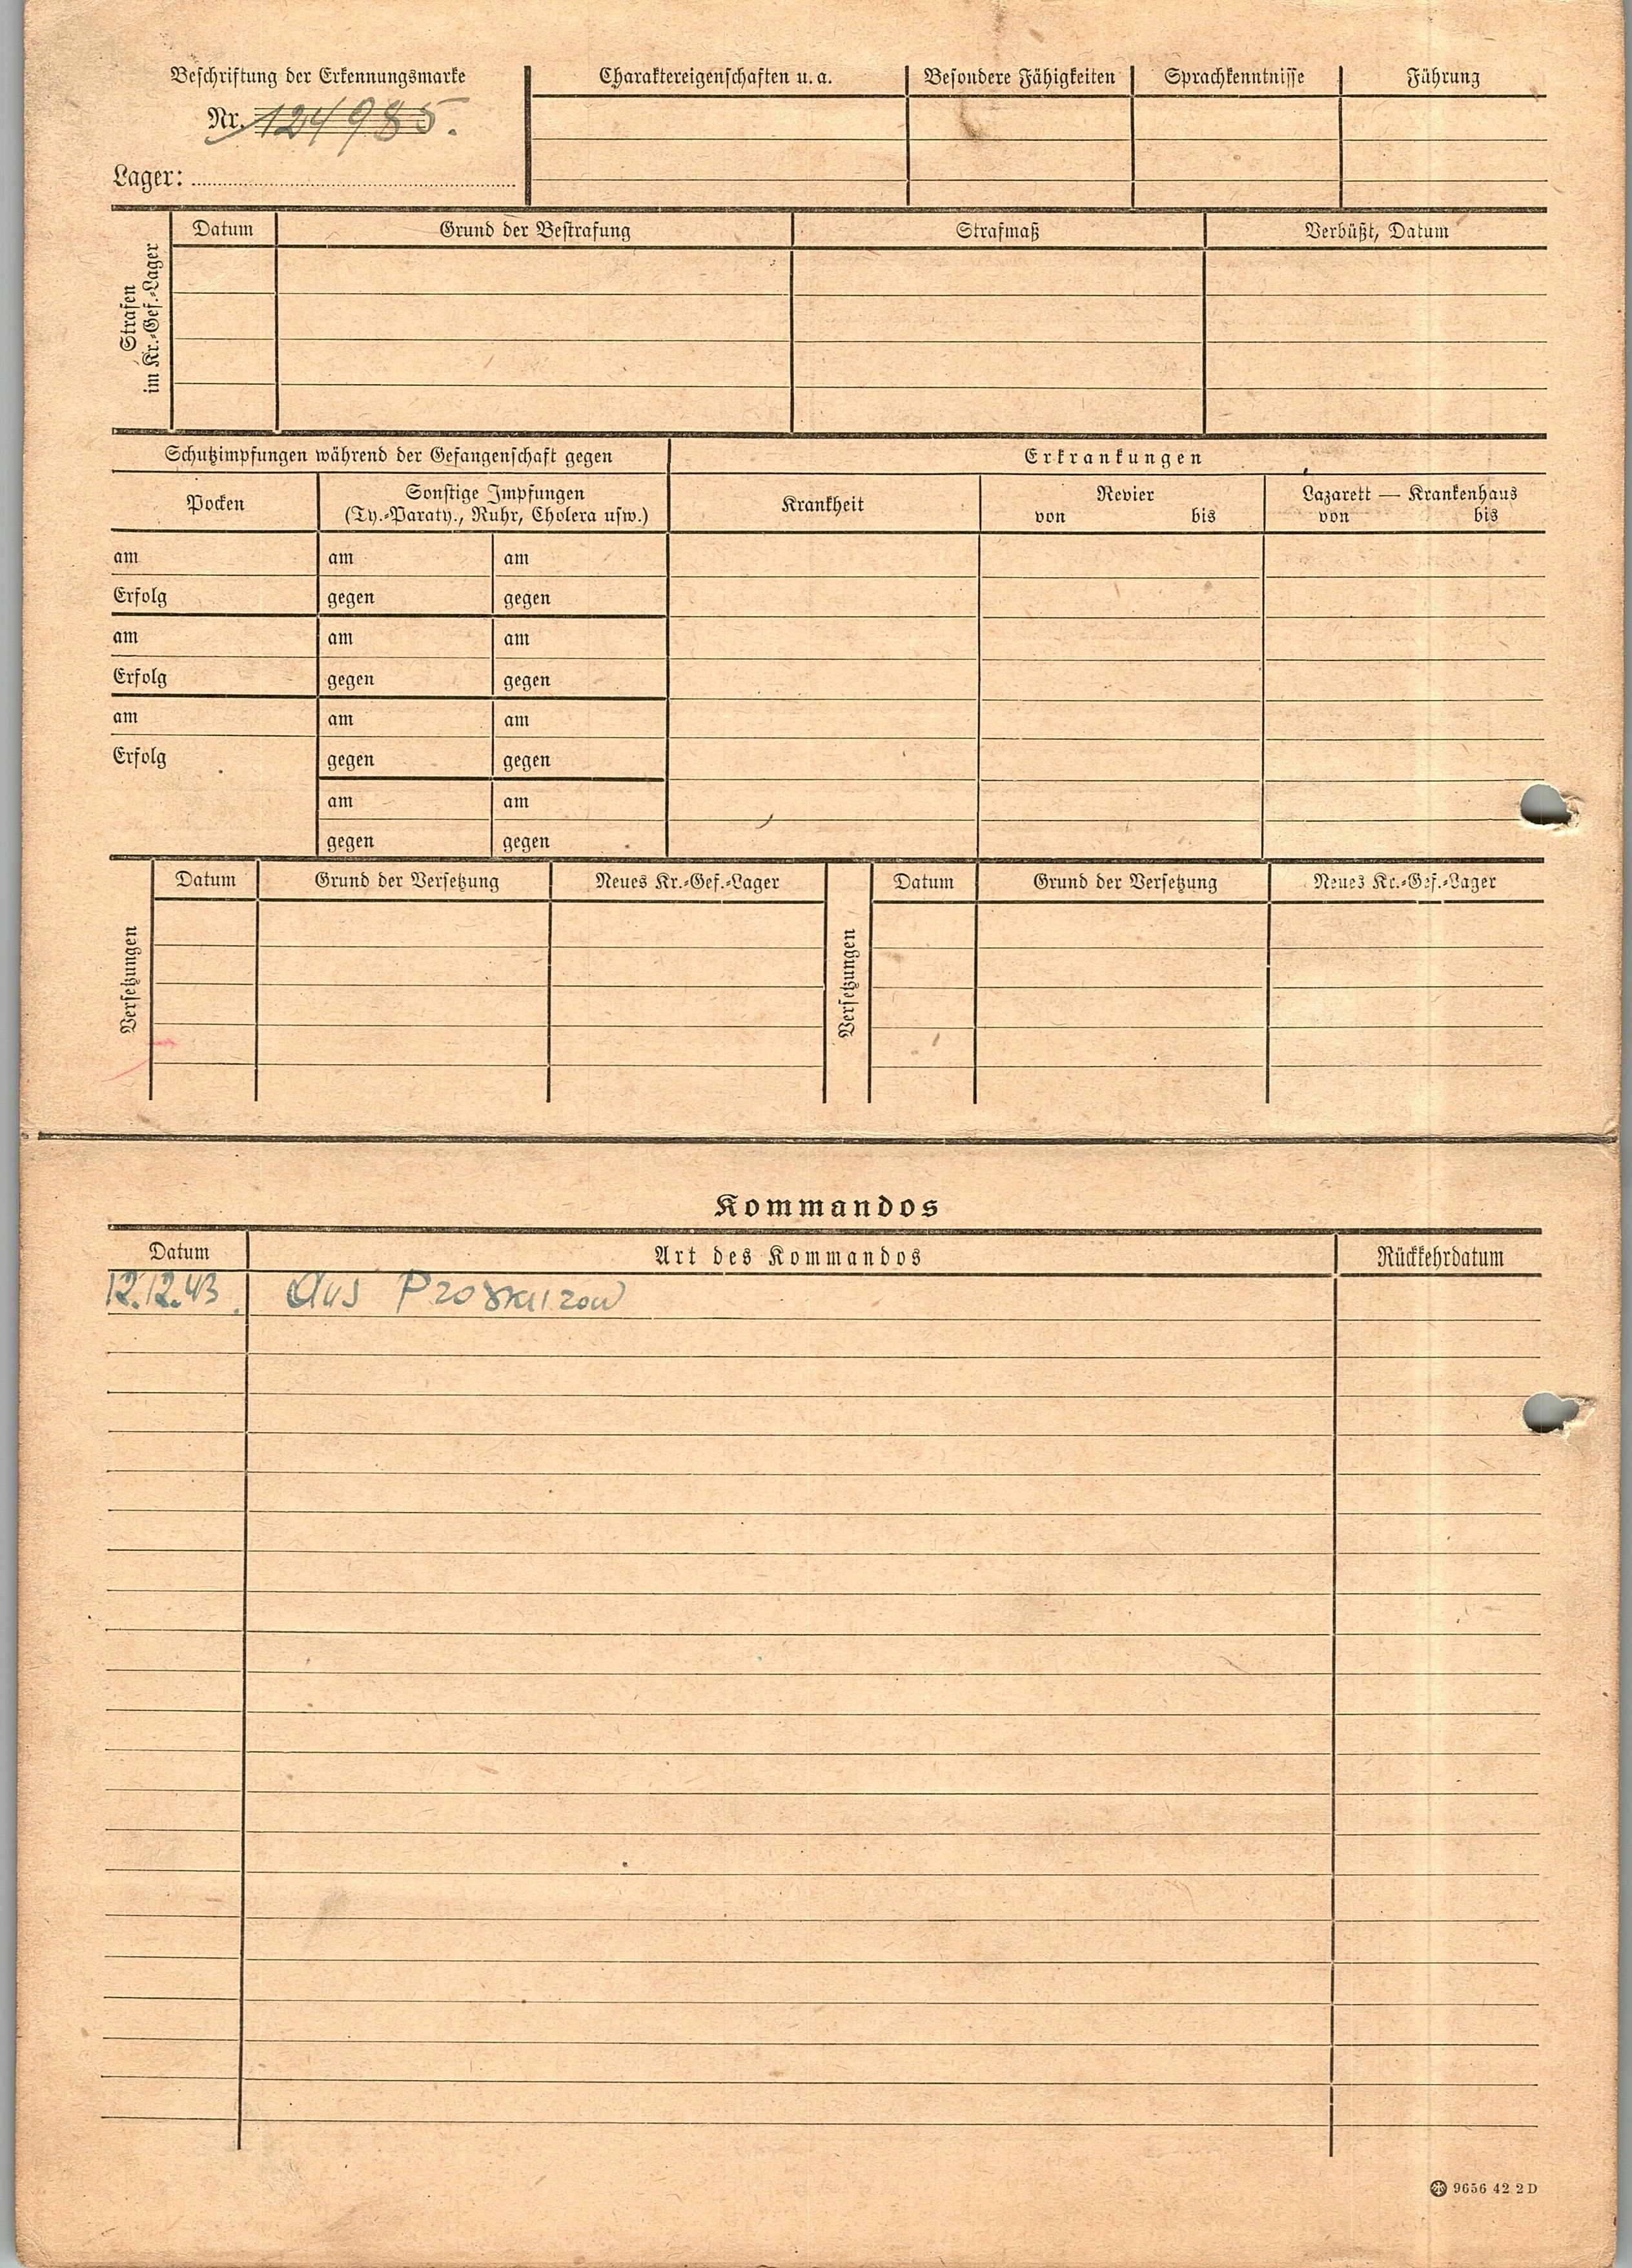 Beschriftung der Erkennungsmarke
Nr. 124985.
Lager:
Charaktereigenschaften u. a.
Besondere Fähigkeiten
Sprachkenntnisse
Führung
Strafen
im Kr.-Gef.-Lager
Datum
Grund der Bestrafung
Strafmaß
Verbüßt, Datum
Schutzimpfungen während der Gefangenschaft gegen
Erkrankungen
Pocken
Sonstige Impfungen
(Ty.-Paraty., Ruhr, Cholera usw.)
Krankheit
Revier
von bis
Lazarett — Krankenhaus
von bis
am am am
Erfolg gegen gegen
am am am
Erfolg gegen gegen
am am am
Erfolg gegen gegen
am am
gegen gegen
Versetzungen
Datum
Grund der Versetzung
Neues Kr.-Gef.-Lager
Versetzungen
Datum
Grund der Versetzung
Neues Kr.-Gef.-Lager
Kommandos
Datum
Art des Kommandos
Rückkehrdatum
12.12.43. Aus Proskurow
9656 42 2 D